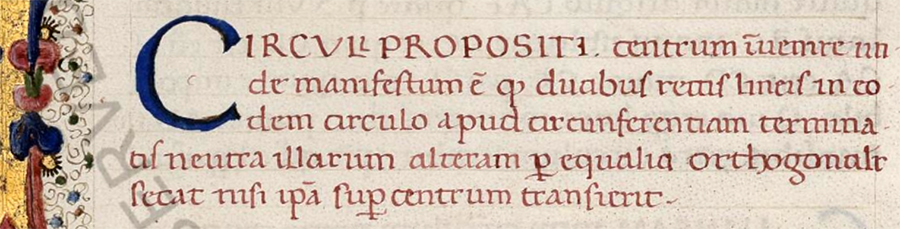 CIRCVLI PROPOSITI. centrum īuenire un
de manifestum ē ꝙ duabus rectis lineis in eo
dem circulo apud circunferentiam termina
tis neutra illarum alteram ꝑ equalia orthogonalr
secat nisi ip̄a suꝑ centrum transierit.